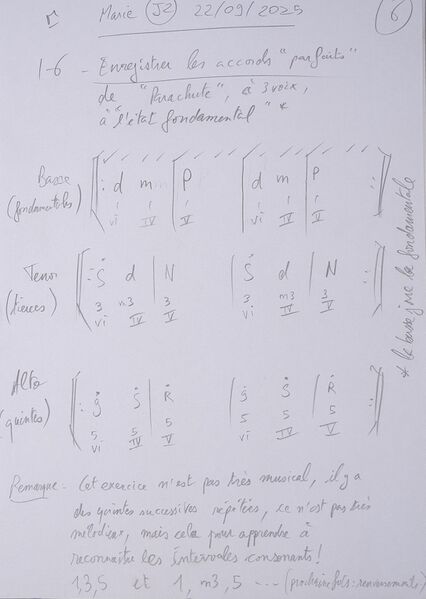 Marie J2 22/09/2025 6
1-6 - Enregistrer les accords "parfaits"
de "Parachute", à 3 voix,
à "l'état fondamental" *
Basse |: d m | P d m | P :|
(fondamentales) 1 1 1 1 1 1
vi IV V vi IV
Tenor |: S d | N S d | N :|
(tierces) 3 m3 3 3 m3 3
vi IV V vi IV V
Alto |: g S | R g S | R :|
(quintes) 5 5 5 5 5 5
vi IV V vi IV V
* la basse joue la fondamentale
Remarque - Cet exercice n'est pas très musical, il y a
des quintes successives répétées, ce n'est pas très
mélodieux, mais cela pour apprendre à
reconnaître les intervales consonants!
1,3,5 et 1, m3, 5 --- (prochaine fois: renversements)